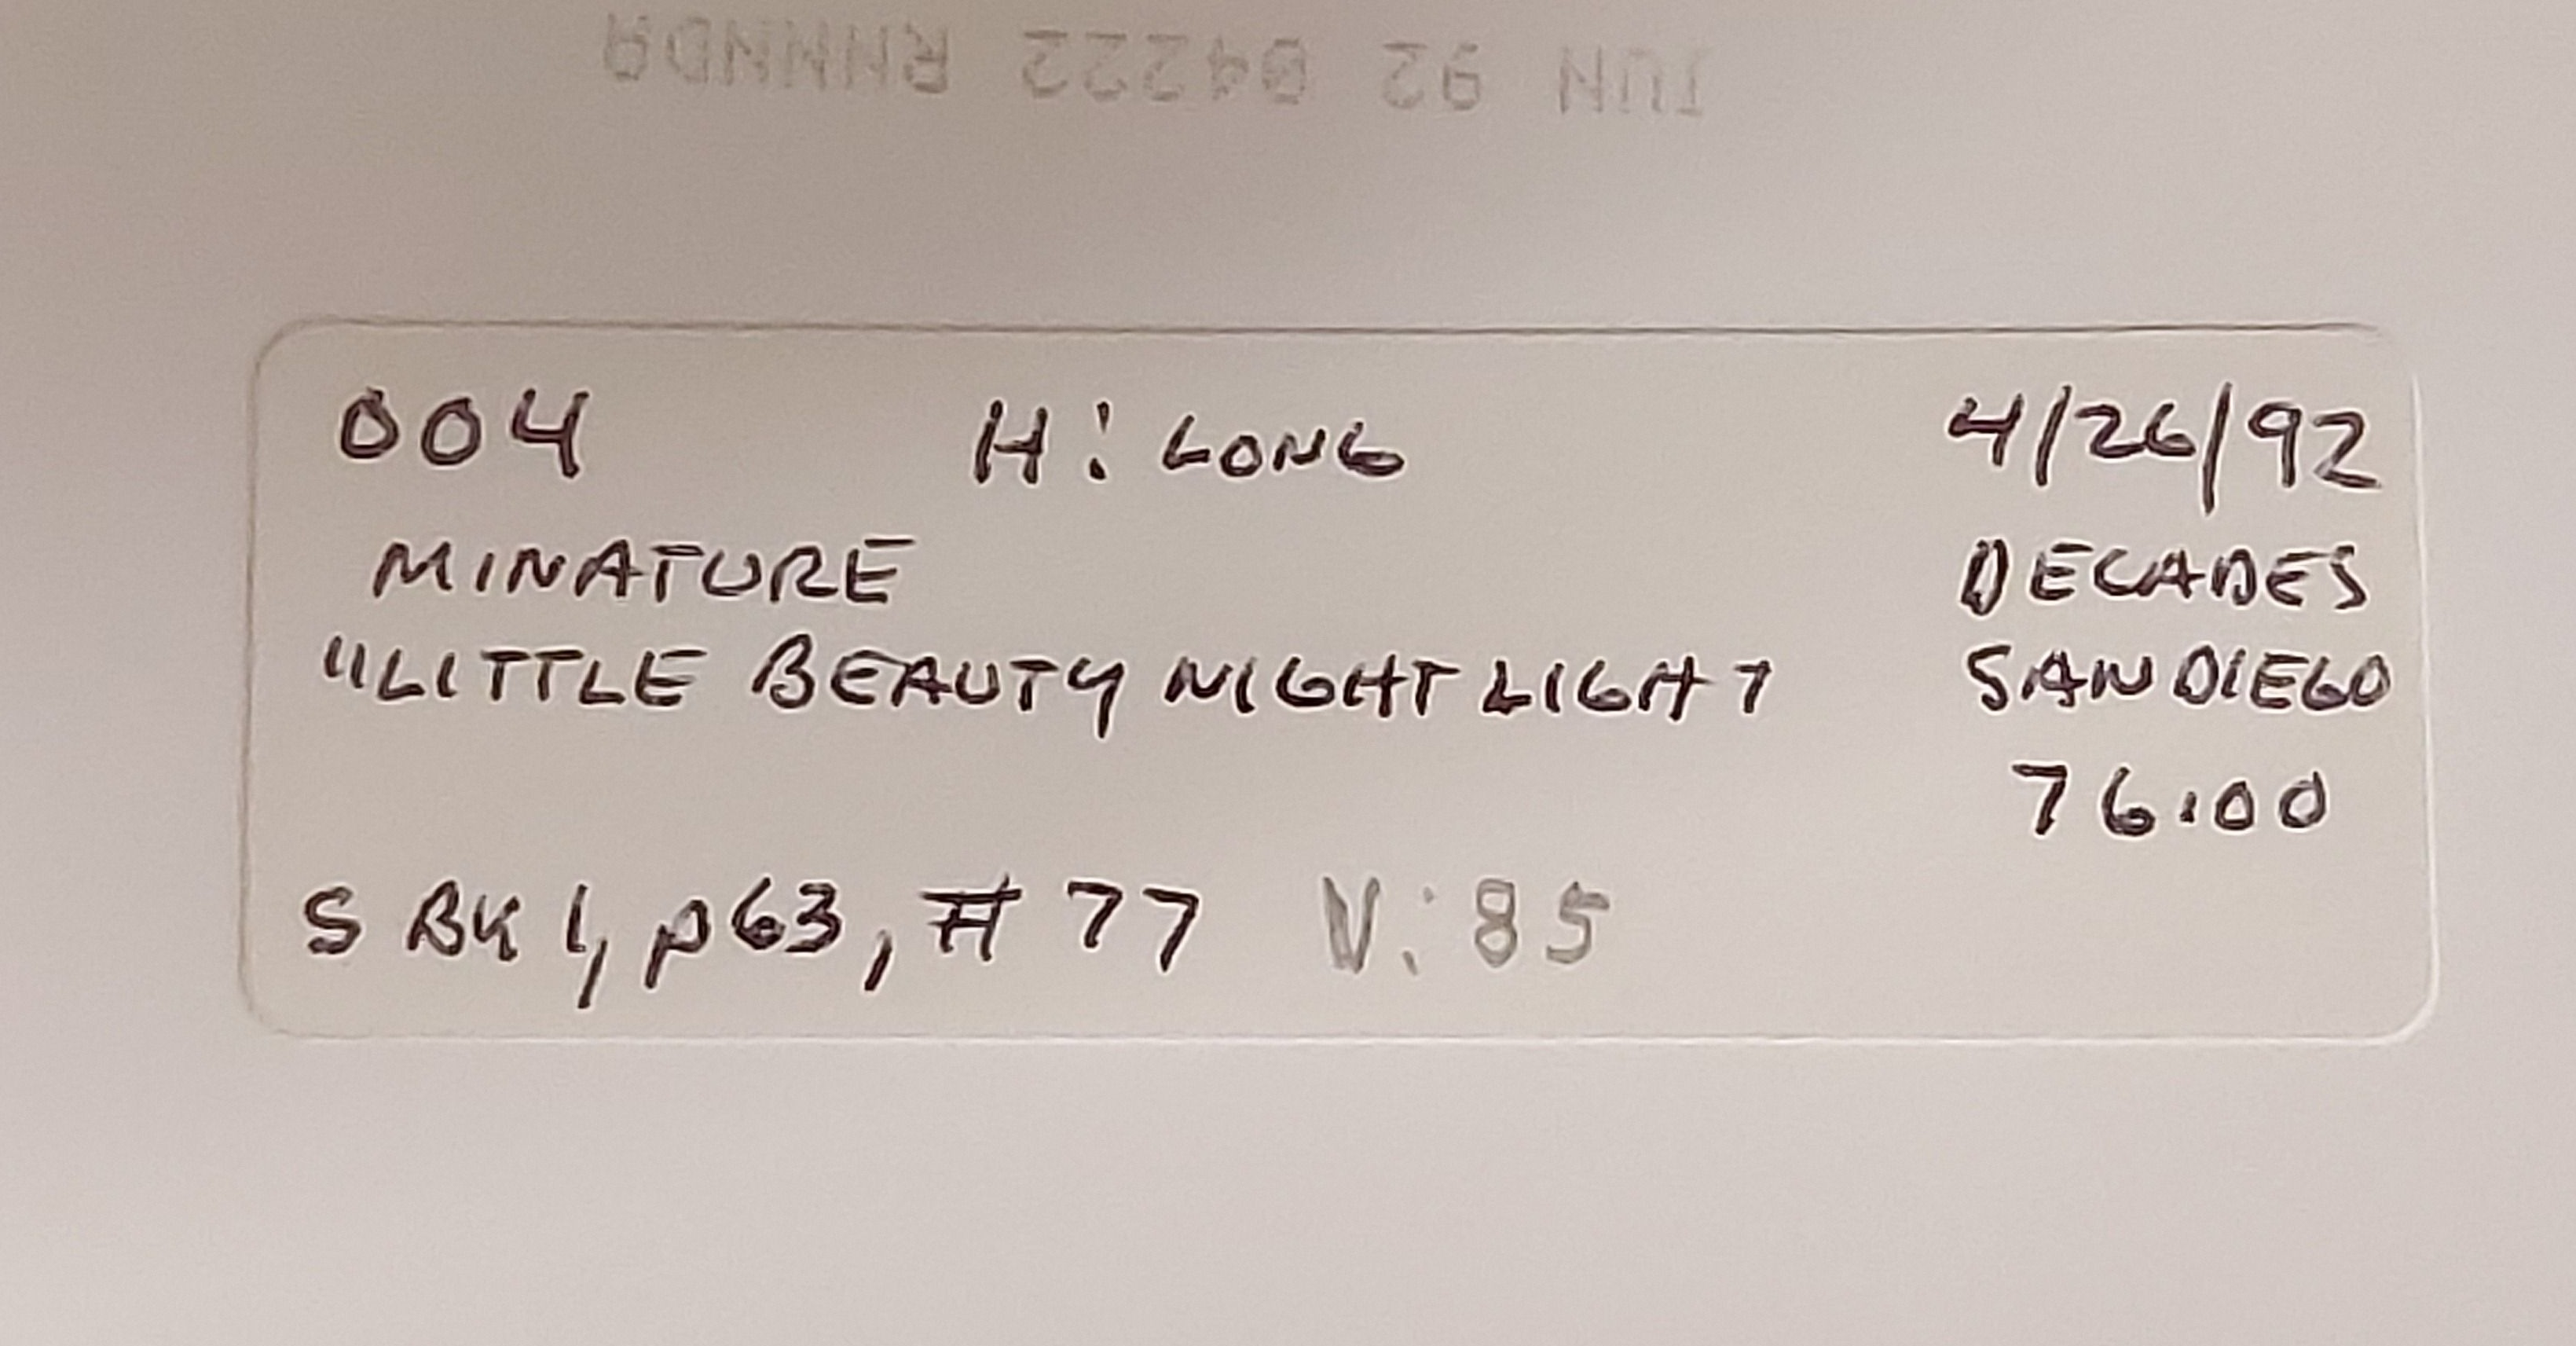 JUN 92 04222 RNNNDA
004 H: LONG 4/26/92
MINATURE DECADES
"LITTLE BEAUTY NIGHT LIGHT SAN DIEGO
76.00
S BK 1, p63, # 77 V: 85